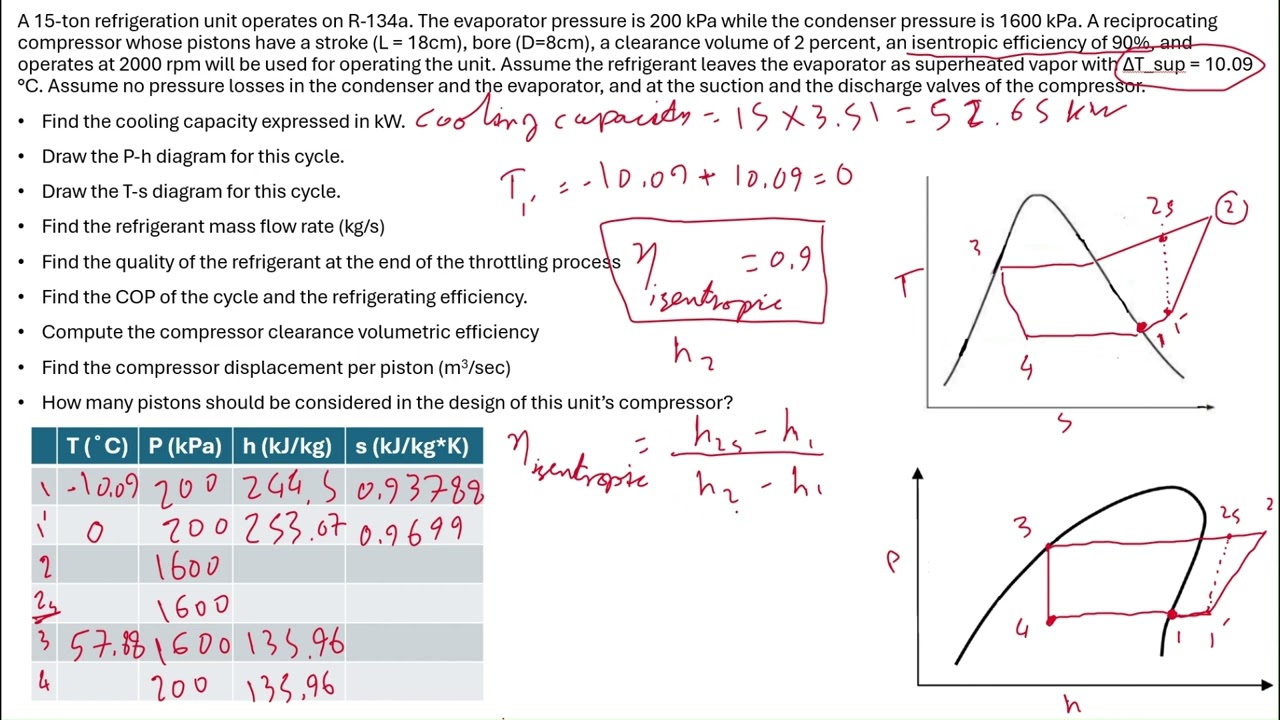 A 15-ton refrigeration unit operates on R-134a. The evaporator pressure is 200 kPa while the condenser pressure is 1600 kPa. A reciprocating
compressor whose pistons have a stroke (L = 18cm), bore (D=8cm), a clearance volume of 2 percent, an isentropic efficiency of 90%, and
operates at 2000 rpm will be used for operating the unit. Assume the refrigerant leaves the evaporator as superheated vapor with ΔT_sup = 10.09
°C. Assume no pressure losses in the condenser and the evaporator, and at the suction and the discharge valves of the compressor.
• Find the cooling capacity expressed in kW. cooling capacity = 15 X 3.51 = 52.65 kW
• Draw the P-h diagram for this cycle.
• Draw the T-s diagram for this cycle.
T1' = -10.09 + 10.09 = 0
• Find the refrigerant mass flow rate (kg/s)
• Find the quality of the refrigerant at the end of the throttling process
η isentropic = 0.9
• Find the COP of the cycle and the refrigerating efficiency.
• Compute the compressor clearance volumetric efficiency
h2
• Find the compressor displacement per piston (m³/sec)
• How many pistons should be considered in the design of this unit's compressor?
η isentropic = h2s - h1
h2 - h1
T (°C) P (kPa) h (kJ/kg) s (kJ/kg*K)
1 -10.09 200 244.5 0.93788
1' 0 200 253.07 0.9699
2 1600
2s 1600
3 57.88 1600 135.96
4 200 135.96
2s 2
3
T
1 1'
4
s
3 2s 2
P
4 1 1'
h